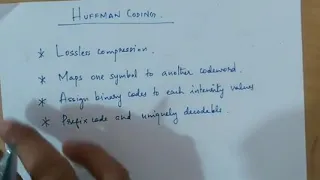 HUFFMAN CODING.
* Lossless compression.
* Maps one symbol to another codeword.
* Assign binary codes to each intensity values
* Prefix code and uniquely decodable.